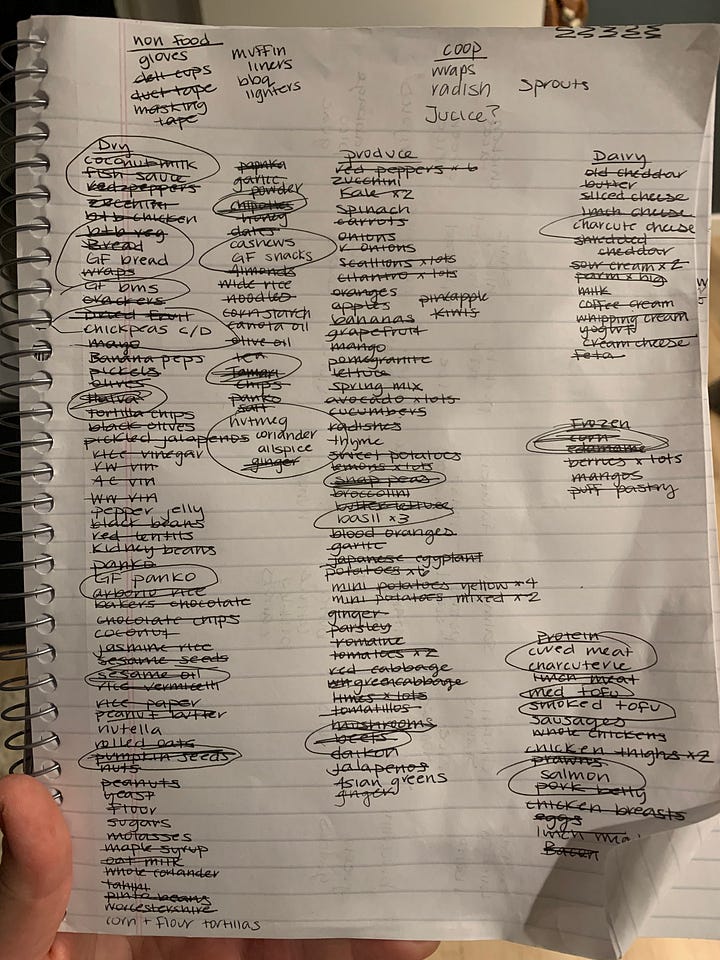 non food
gloves
deli cups
duct tape
masking
tape
muffin
liners
bbq
lighters
coop
wraps
radish
Jucice?
sprouts
Dry
coconut milk
fish sauce
red peppers
zucchini
btb chicken
btb veg
Bread
GF bread
wraps
GF buns
crackers
Dried fruit
chickpeas c/D
mayo
Banana peps
pickels
olives
Halva
tortilla chips
black olives
pickled jalapenos
rice vinegar
rw vin
AC vin
ww vin
pepper jelly
black beans
red lentils
kidney beans
panko
GF panko
arborio rice
bakers chocolate
chocolate chips
coconut
jasmine rice
sesame seeds
sesame oil
rice vermicelli
rice paper
peanut butter
nutella
rolled oats
pumpkin seeds
nuts
peanuts
yeast
flour
sugars
molasses
maple syrup
oat milk
whole coriander
tahini
pinto beans
worcestershire
corn + flour tortillas
paprika
garlic
powder
chipotles
honey
dates
cashews
GF snacks
Almonds
wide rice
noodles
corn starch
canola oil
olive oil
tea
Tamari
chips
panko
salt
nutmeg
coriander
allspice
ginger
produce
red peppers x 6
zucchini
Kale x2
spinach
carrots
onions
r onions
scallions x lots
cilantro x lots
oranges
apples
bananas
grapefruit
pineapple
kiwis
mango
pomegranite
lettuce
spring mix
avocado x lots
cucumbers
radishes
thyme
sweet potatoes
lemons x lots
snap peas
broccolini
butter lettuce
basil x3
blood oranges
garlic
japanese eggplant
potatoes x6
mini potatoes yellow x4
mini potatoes mixed x2
ginger
parsley
romaine
tomatoes x2
red cabbage
green cabbage
limes x lots
tomatillos
mushrooms
beets
daikon
jalapenos
Asian greens
ginger
Dairy
old cheddar
butter
sliced cheese
lunch cheese
charcute cheese
shredded
cheddar
sour cream x2
parm x big
milk
coffee cream
whipping cream
yogurt
cream cheese
feta
Frozen
corn
edamame
berries x lots
mangos
puff pastry
Protein
cured meat
charcuterie
lunch meat
med tofu
smoked tofu
sausages
whole chickens
chicken thighs x2
prawns
salmon
pork belly
chicken breasts
eggs
lunch
Bacon